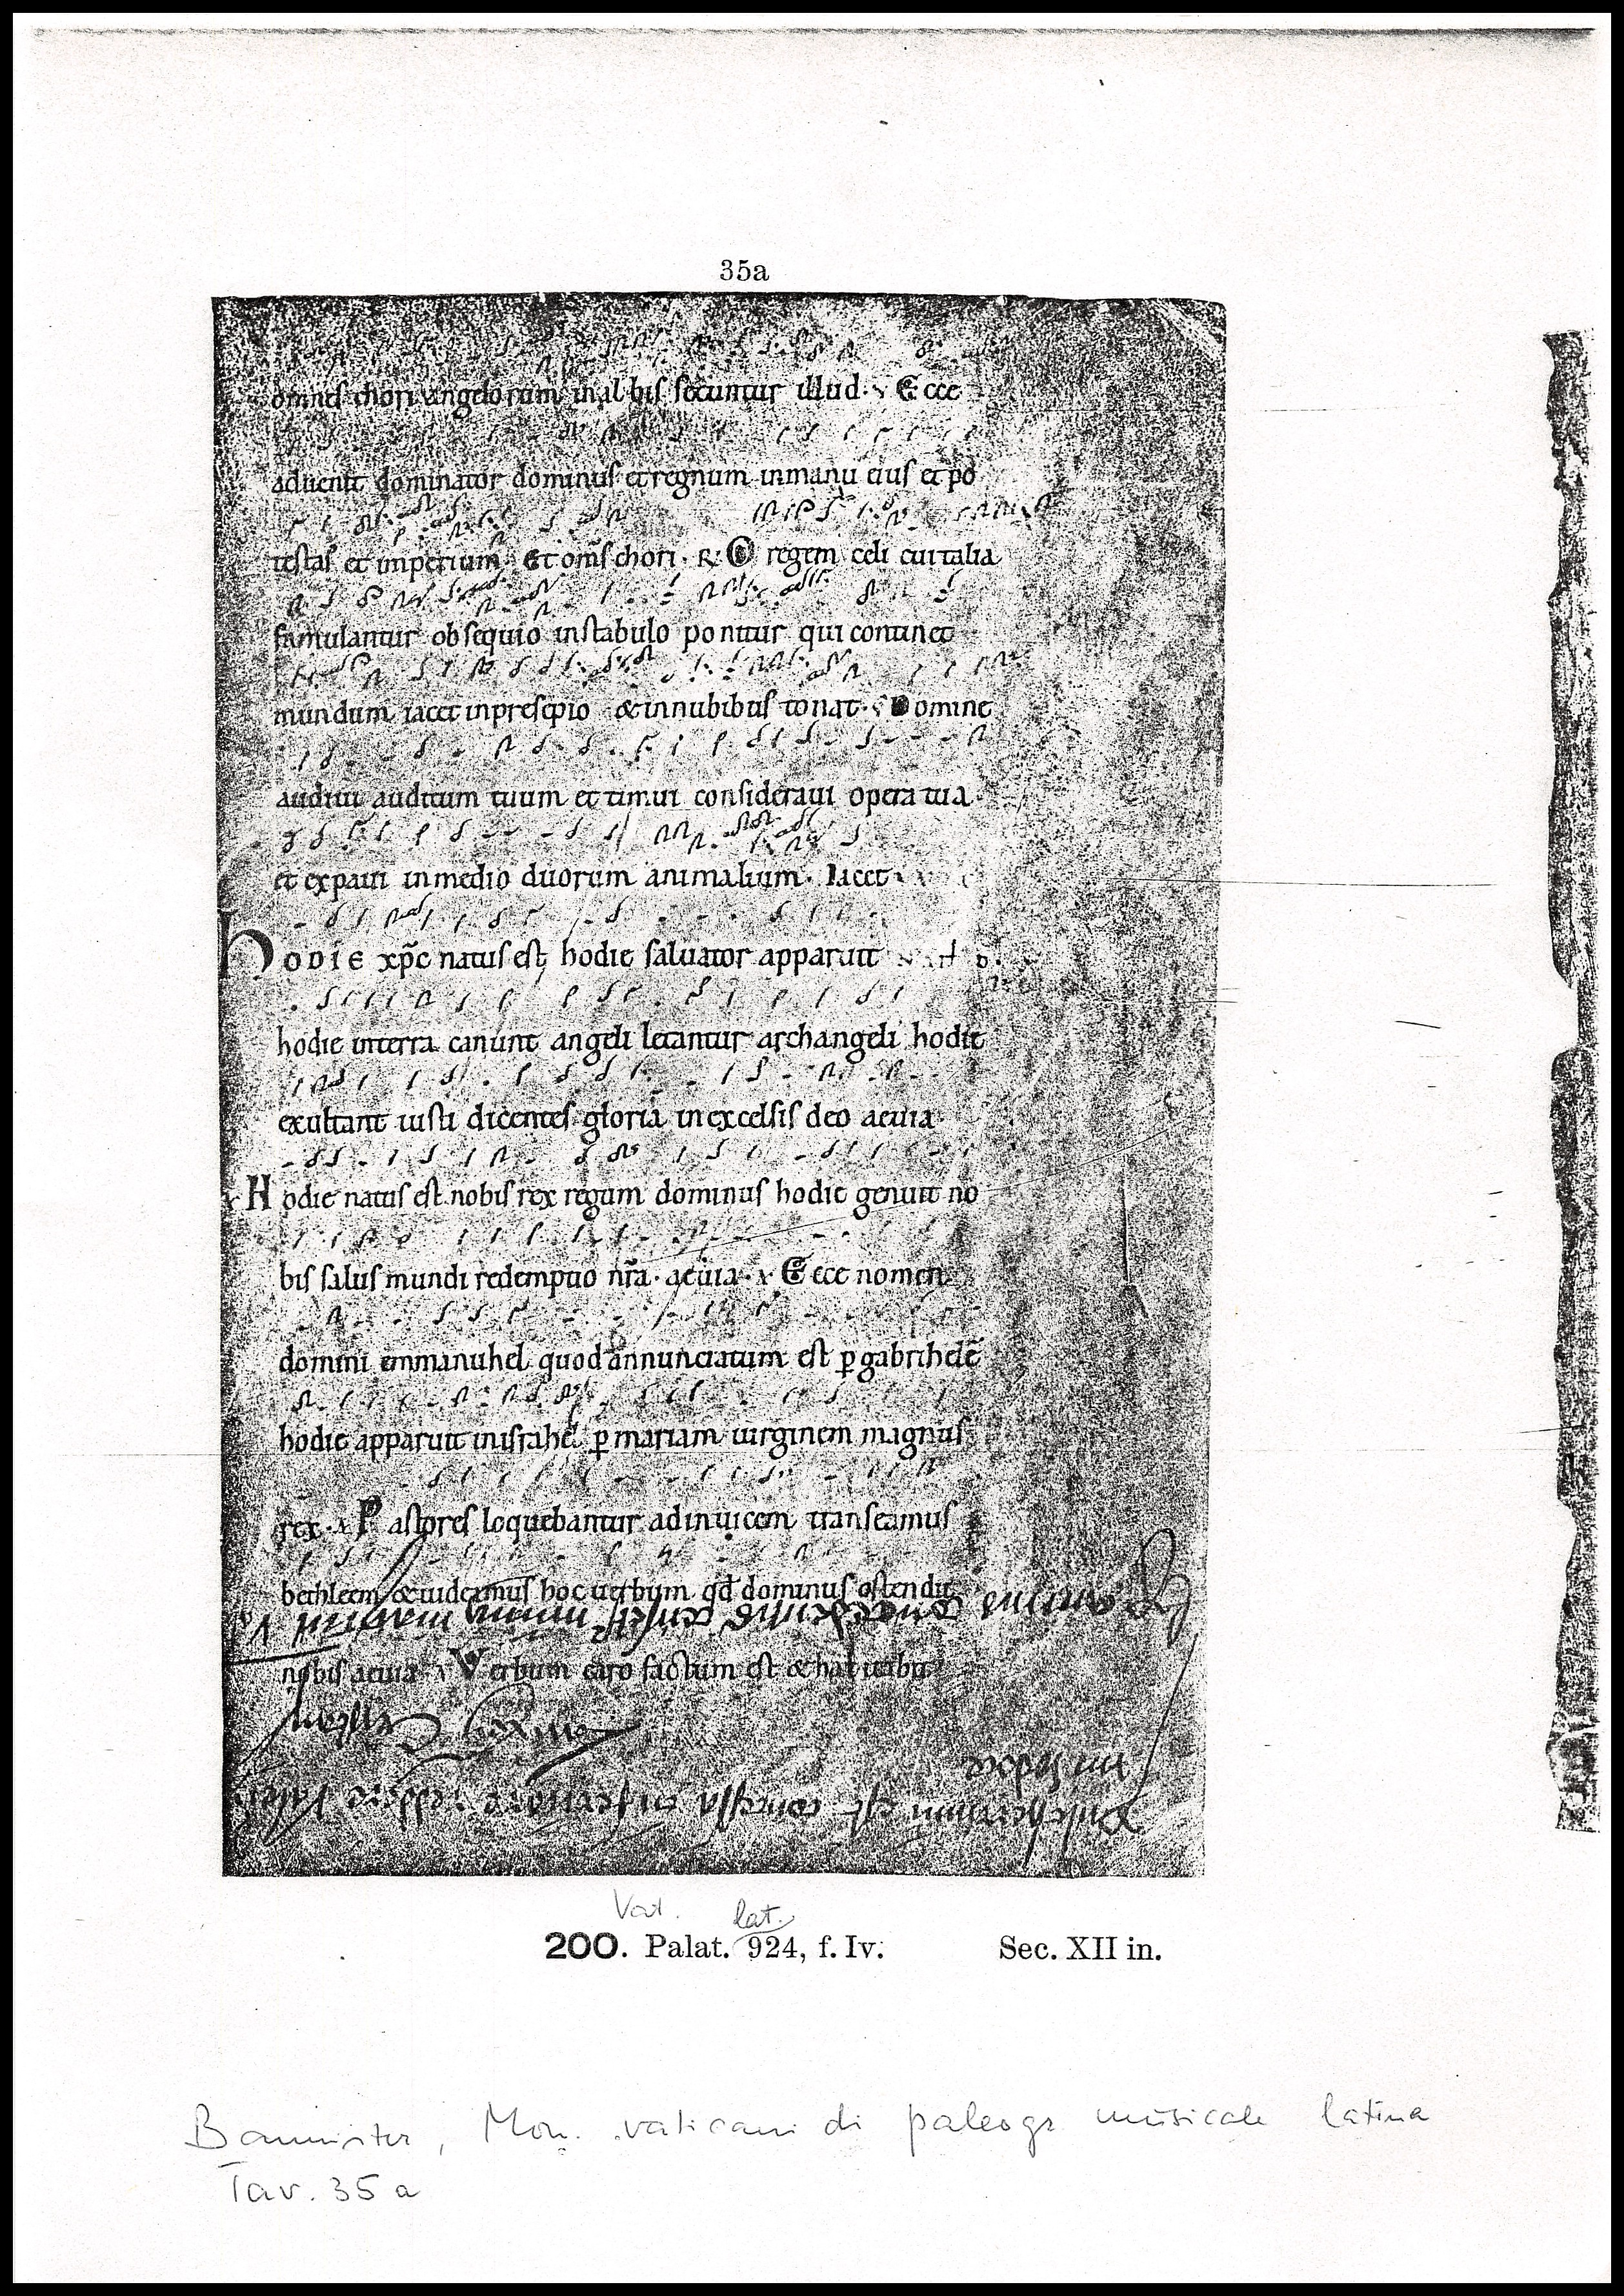 35a
omnes chori angelorum in albis secuntur illud · v Ecce
aduenit dominator dominus et regnum in manu eius et po
testas et imperium Et om̄s chori · R: O regem celi cui talia
famulantur obsequio in stabulo ponitur qui continet
mundum iacet in presepio & in nubibus tonat · v Domine
audiui auditum tuum et timui consideraui opera tua
et expaui in medio duorum animalium · Iacet
Hodie xp̄c natus est hodie saluator apparuit
hodie in terra canunt angeli letantur archangeli hodie
exultant iusti dicentes gloria in excelsis deo aeuia
v Hodie natus est nobis rex regum dominus hodie genuit no
bis salus mundi redemptio nr̄a · aeuia · v Ecce nomen
domini emmanuhel quod annunciatum est ꝑ gabrihelē
hodie apparuit in israhel ꝑ mariam uirginem magnus
rex · v Pastores loquebantur ad inuicem transeamus
bethleem & uideamus hoc uerbum qd̄ dominus ostendit
nobis aeuia v Verbum caro factum est & habitabit
Vat. lat.
200. Palat. 924, f. Iv. Sec. XII in.
Bannister, Mon. vaticani di paleogr musicale latina
Tav. 35 a